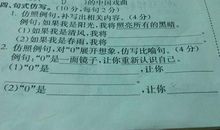 D        )的中国戏曲
四、句式仿写。(10分,每句2分)
1. 仿照例句,补写出相关内容。(4分)
例句:如果我是阳光,我将照亮所有的黑暗。
(1)如果我是清风,我将
(2)如果我是春雨,我将
2. 仿照例句,对“0”展开想象,仿写比喻句。(4分)
例句:“0”是一面镜子,让你重新认识自己。
(1)“0”是            ,让你
(2)“0”是            ,让你